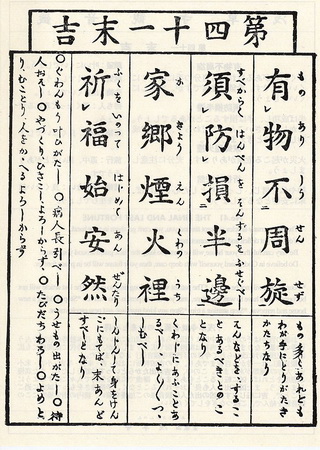 第四十一末吉
もの ありしうせんせず
有レ物不周旋
もの多くあれども
わが手にとりがたき
かたちなり
すべからくはんぺんをそんするをふせぐべし
須レ防レ損二半邊一
そんなどを、するこ
とあるべきとのこ
となり
かきようえんくわのうち
家郷煙火裡
くわじにあふことあ
るべし、よく〱つゝ
しむべし
ふくをいのつてはじめてあんぜんたり
祈レ福始安然
しんじんして身をけん
ごにもてば、末あんど
すべしとなり
○ぐわんもう叶ひがたし ○病人長引べし ○うせもの出がたし ○待
人おそし ○やづくり、ひきこし、よろしからず、 ○たびだちわろし ○よめと
り、むことり、人をかゝへるよろしからず